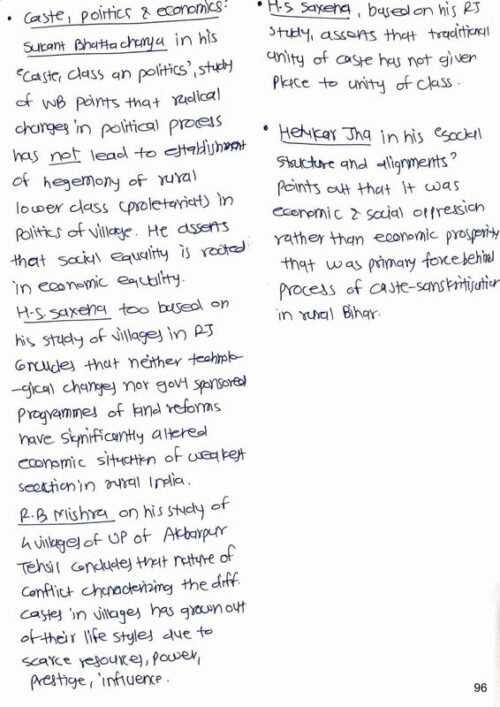 • Caste, politics & economics:
Sukant Bhattacharya in his
"Caste, class an politics', study
of WB points that radical
changes in political process
has not lead to establishment
of hegemony of rural
lower class (proletariat) in
Politics of village. He asserts
that social equality is rooted
in economic equality.
H.S. Saxena too based on
his study of villages in RJ
Concludes that neither technolo-
-gical changes nor govt sponsored
Programmes of land reforms
have significantly altered
economic situation of weakest
section in rural India.
R.B Mishra on his study of
4 villages of UP of Akbarpur
Tehsil concludes that nature of
conflict characterizing the diff.
castes in villages has grown out
of their life styles due to
scarce resources, power,
prestige, influence.
• H.S Saxena, based on his RJ
study, asserts that traditional
unity of caste has not given
place to unity of class.
• Hetukar Jha in his "social
structure and alignments"
points out that it was
economic & social oppression
rather than economic prosperity
that was primary force behind
process of caste-sanskritisation
in rural Bihar.
96